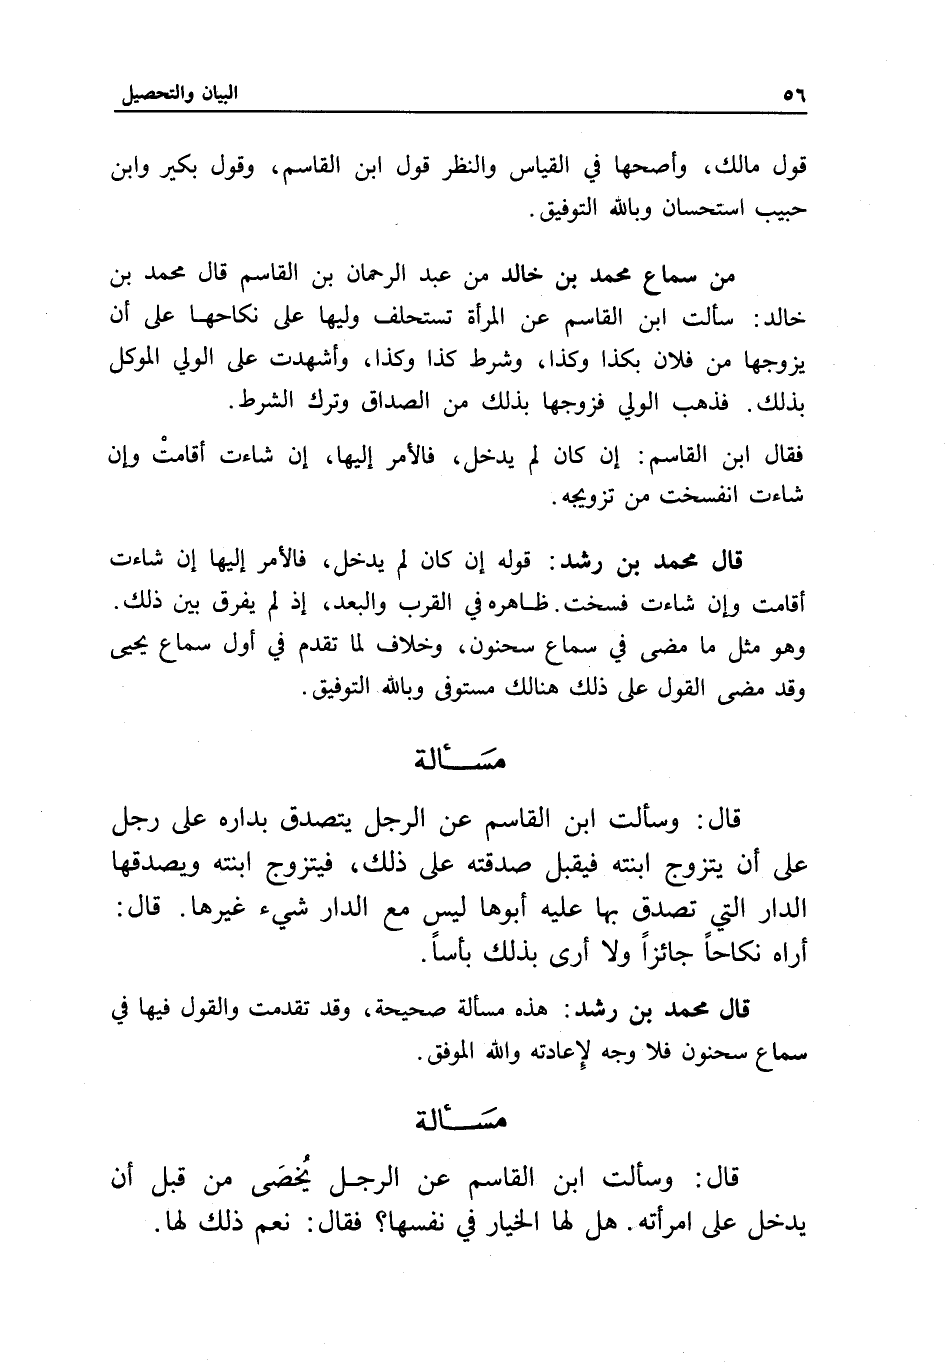 ٥٦ البيان والتحصيل
قول مالك، وأصحها في القياس والنظر قول ابن القاسم، وقول بكير وابن
حبيب استحسان وبالله التوفيق.
من سماع محمد بن خالد من عبد الرحمان بن القاسم قال محمد بن
خالد: سألت ابن القاسم عن المرأة تستحلف وليها على نكاحها على أن
يزوجها من فلان بكذا وكذا، وشرط كذا وكذا، وأشهدت على الولي الموكل
بذلك. فذهب الولي فزوجها بذلك من الصداق وترك الشرط.
فقال ابن القاسم: إن كان لم يدخل، فالأمر إليها، إن شاءت أقامتْ وإن
شاءت انفسخت من تزويجه.
قال محمد بن رشد: قوله إن كان لم يدخل، فالأمر إليها إن شاءت
أقامت وإن شاءت فسخت. ظاهره في القرب والبعد، إذ لم يفرق بين ذلك.
وهو مثل ما مضى في سماع سحنون، وخلاف لما تقدم في أول سماع يحيى
وقد مضى القول على ذلك هنالك مستوفى وبالله التوفيق.
مَسـألة
قال: وسألت ابن القاسم عن الرجل يتصدق بداره على رجل
على أن يتزوج ابنته فيقبل صدقته على ذلك، فيتزوج ابنته ويصدقها
الدار التي تصدق بها عليه أبوها ليس مع الدار شيء غيرها. قال:
أراه نكاحاً جائزاً ولا أرى بذلك بأساً.
قال محمد بن رشد: هذه مسألة صحيحة، وقد تقدمت والقول فيها في
سماع سحنون فلا وجه لإعادته والله الموفق.
مَسـألة
قال: وسألت ابن القاسم عن الرجل يُخصَى من قبل أن
يدخل على امرأته. هل لها الخيار في نفسها؟ فقال: نعم ذلك لها.